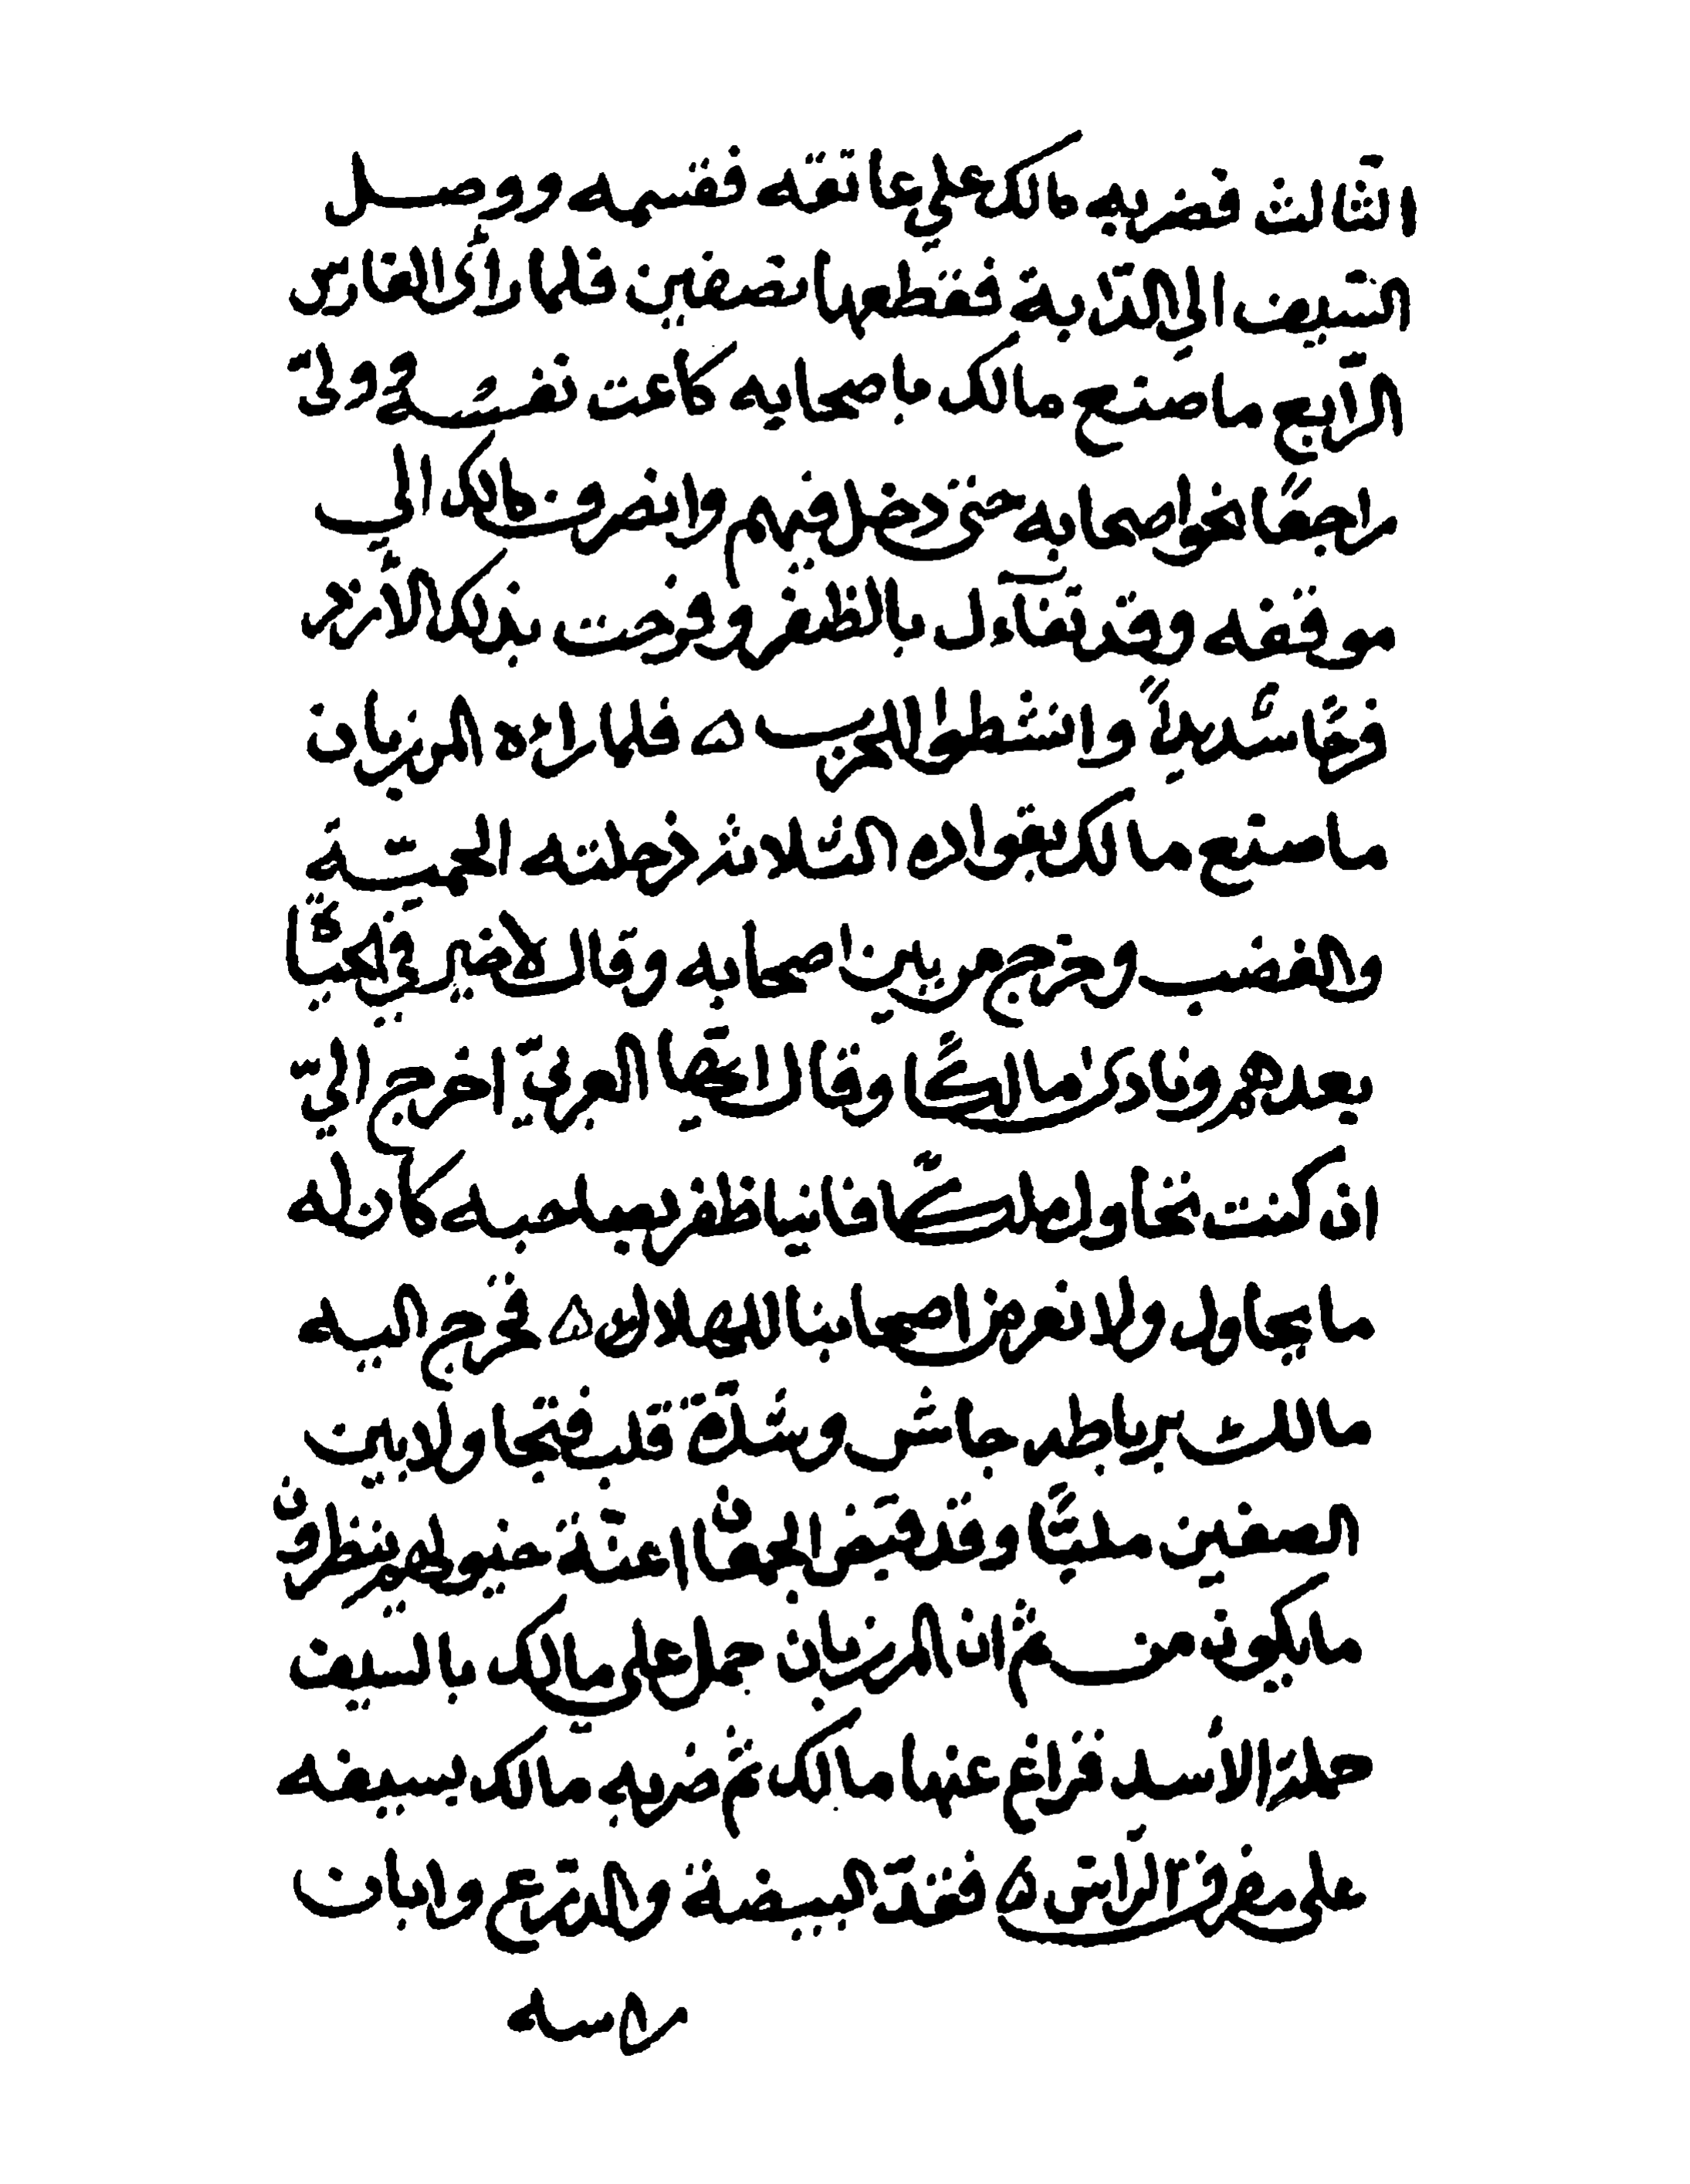 الثالث فضربه مالك علي عاتقه فقسمه ووصل
السّيف الي الدّابة فقطعها نصفين فلما رأى الفارس
الرّابع ما صنع مالك باصحابه كاعت نفسه وولىّ
راجعًا نحو اصحابه حتى دخل فيهم وانصرف مالك الي
موقفه وقد تفآءل بالظفر وفرحت بذلك الأزد
فرحًا شديدًا وانشطوا للحرب ه فلما راءه المرزبان
ما صنع مالك بقواده الثلاثة دخلته الحميّة
والغضب وخرج من بين اصحابه وقال لا خير في الحياة
بعدهم ونادى مالكًا وقال ايّها العربيّ اخرج اليّ
ان كنت تحاول ملكًا فاينا ظفر بصاحبه كان له
ما يحاول ولا نعرض اصحابنا للهلاك ه فخرج اليه
مالك برباطه جاش وشدّة قلب فتجاولا بين
الصفين مليًّا وقد قبض الجمعان اعنّة خيولهم ينظرون
ما يكون من ثم ان المرزبان حمل علي مالك بالسيف
حملة الأسد فراغ عنها مالك ثم ضربه مالك بسيفه
على مفرق الرّاس ه فقدّ البيضة والدرع وابان
راسه